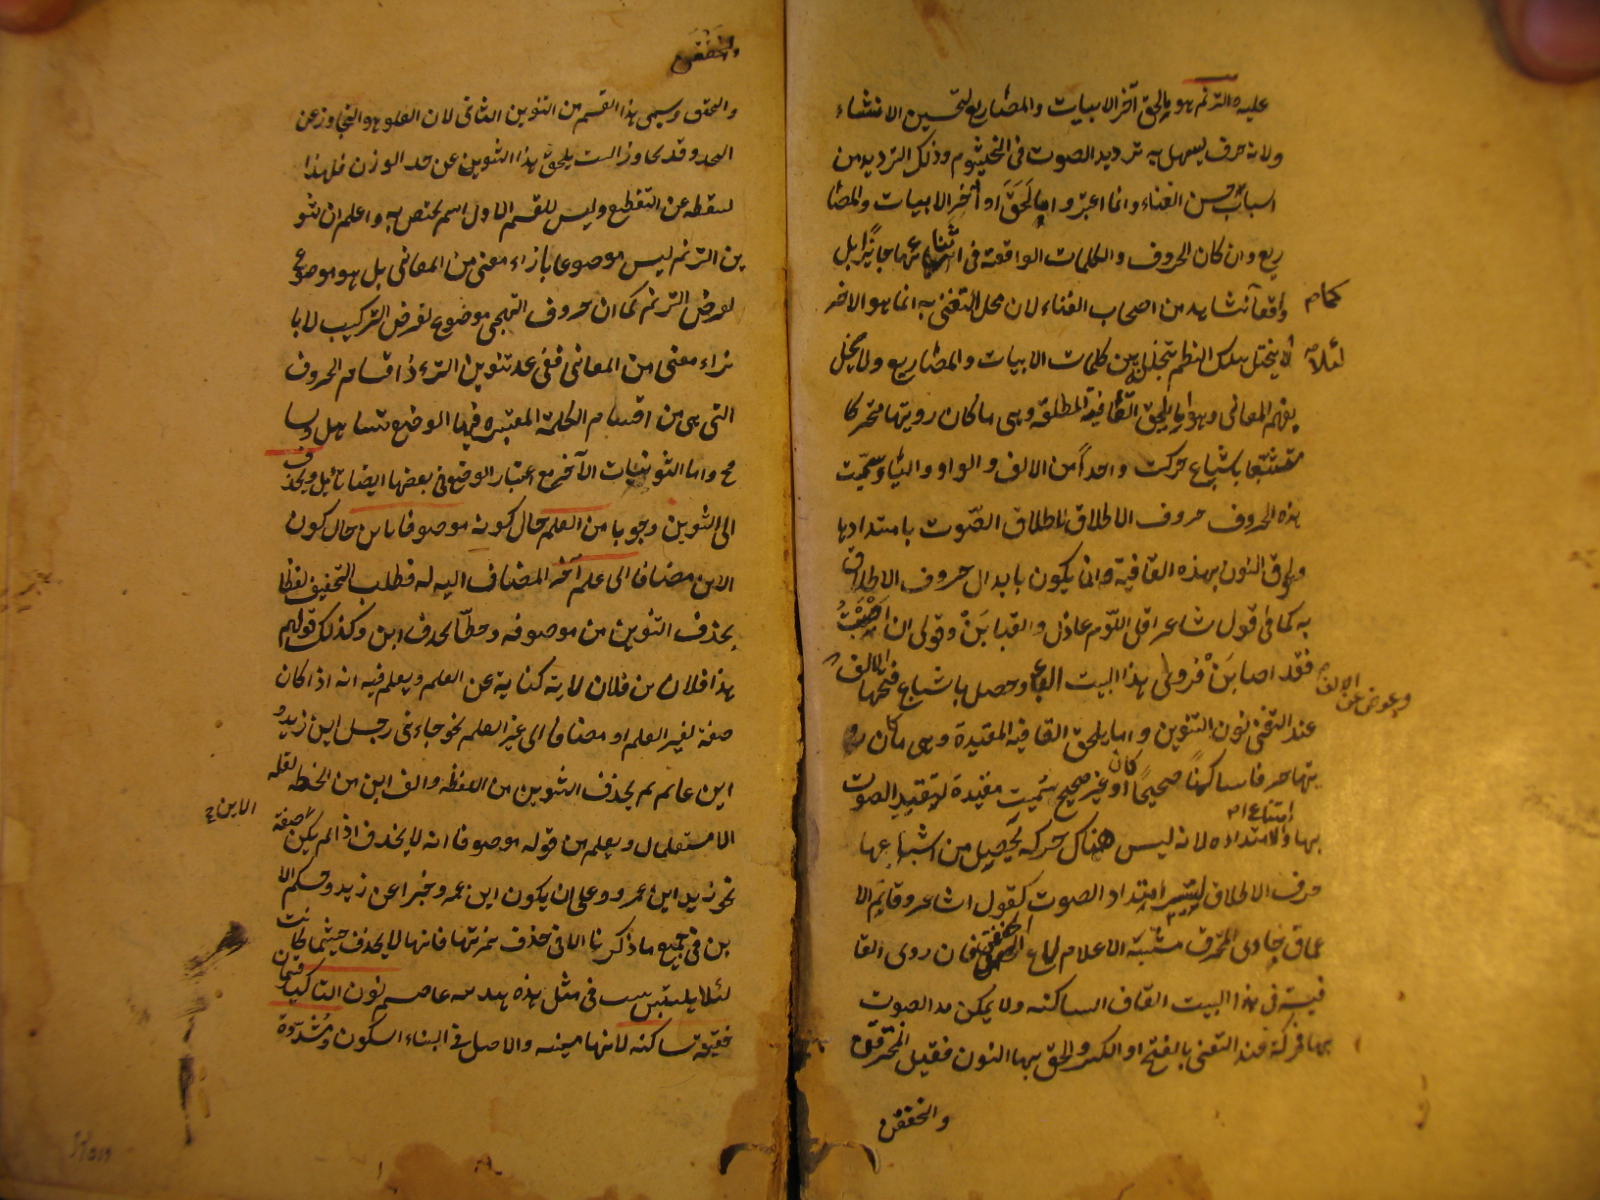 عليه الترنم هو ما يلحق آخر الابيات والمصاريع لتحسين الانشاء
ولانه حرف يسهل به ترديد الصوت في الخيشوم وذلك الترديد من
اسباب حسن الغناء وانما اعتبروا ما لحق اواخر الابيات والمصا
ريع وان كان الحروف والكلمات الواقعة في اثنائها جائزا بل
واقعا نشاهد من اصحاب الغناء لان محل التغني به انما هو الاخر
كما
لئلا
يختل سلك النظم بتخلل بين كلمات الابيات والمصاريع ولا يخل
بفهم المعاني وهو اما يلحق القافية المطلقة وهي ما كان رويها متحركا
باشباع حركته واحدا من الالف والواو والياء وسميت
هذه الحروف حروف الاطلاق لاطلاق الصوت بامتدادها
ولحوق النون بهذه القافية وانما يكون بابدال حروف الاطلاق
به كما في قول شاعر اقلي اللوم عاذل والعتابن وقولي ان اصبت
فقد اصابن فروي هذا البيت وحصل باشباع فتحها الالف
وعوض عن الالف
عند التغني نون التنوين واما يلحق القافية المقيدة وهي ما كان رو
يها حرفا ساكنا صحيحا كان او غير صحيح سميت مقيدة لتقييد الصوت
بها وامتناع امتداده لانه ليس هناك حركة يحصل من اشباعها
حرف الاطلاق ليتيسر امتداد الصوت كقول الشاعر وقاتم الا
عماق خاوي المخترق مشتبه الاعلام لماع الخفقن فان روى القا
فية في هذا البيت القاف الساكنة ولا يمكن مد الصوت
بها فحركت عند التغني بالفتح او الكسر والحق بها النون فقيل المخترقن
والخفقن
والخفقن
والتحق ويسمى هذا القسم من التنوين الغالي لان الغلو هو التجاوز عن
الحد وقد تجاوز البيت يلحق هذا التنوين عن حد الوزن فلهذا
يسقط عن التقطيع وليس للقسم الاول اسم يختص به واعلم ان تنو
ين الترنم ليس موضوعا بازاء معنى من المعاني بل هو موضوع
لغرض الترنم كما ان حروف التهجي موضوع لغرض التركيب لا با
زاء معنى من المعاني ففي عد تنوين الترنم اقسام الحروف
التي هي من اقسام الكلمة المعتبرة فيها الوضع تساهل وتسا
مح واما التنوينات الآخر مع اعتبار الوضع في بعضها ايضا تأمل ويحذف
اي التنوين وجوبا من العلم حال كونه موصوفا بابن حال كون
الابن مضافا الى علم آخر المضاف اليه له فطلب التخفيف لفظا
بحذف التنوين من موصوفه وخطا بحذف ابن وكذلك قولهم
هذا فلان بن فلان لانه كناية عن العلم ويعلم فيه انه اذا كان
صفة لغير العلم او مضافا الى غير العلم نحو جاءني رجل ابن زيد و
ابن عالم لم يحذف التنوين من اللفظ والف ابن من الخط لقلة
الابن
الاستعمال ويعلم من قوله موصوفا انه لا يحذف اذا لم يكن صفة
نحو زيد ابن عمرو وعلى ان يكون ابن عمرو خبرا عن زيد وحكم الا
بن في جميع ما ذكرنا الا في حذف همزتها فانها لا يحذف حيثما كانت
لئلا يلتبس بنت في مثل هذه عاصم نون التاكيد
خفيفة ساكنة لانها مبنية والاصل في البناء السكون ومشددة